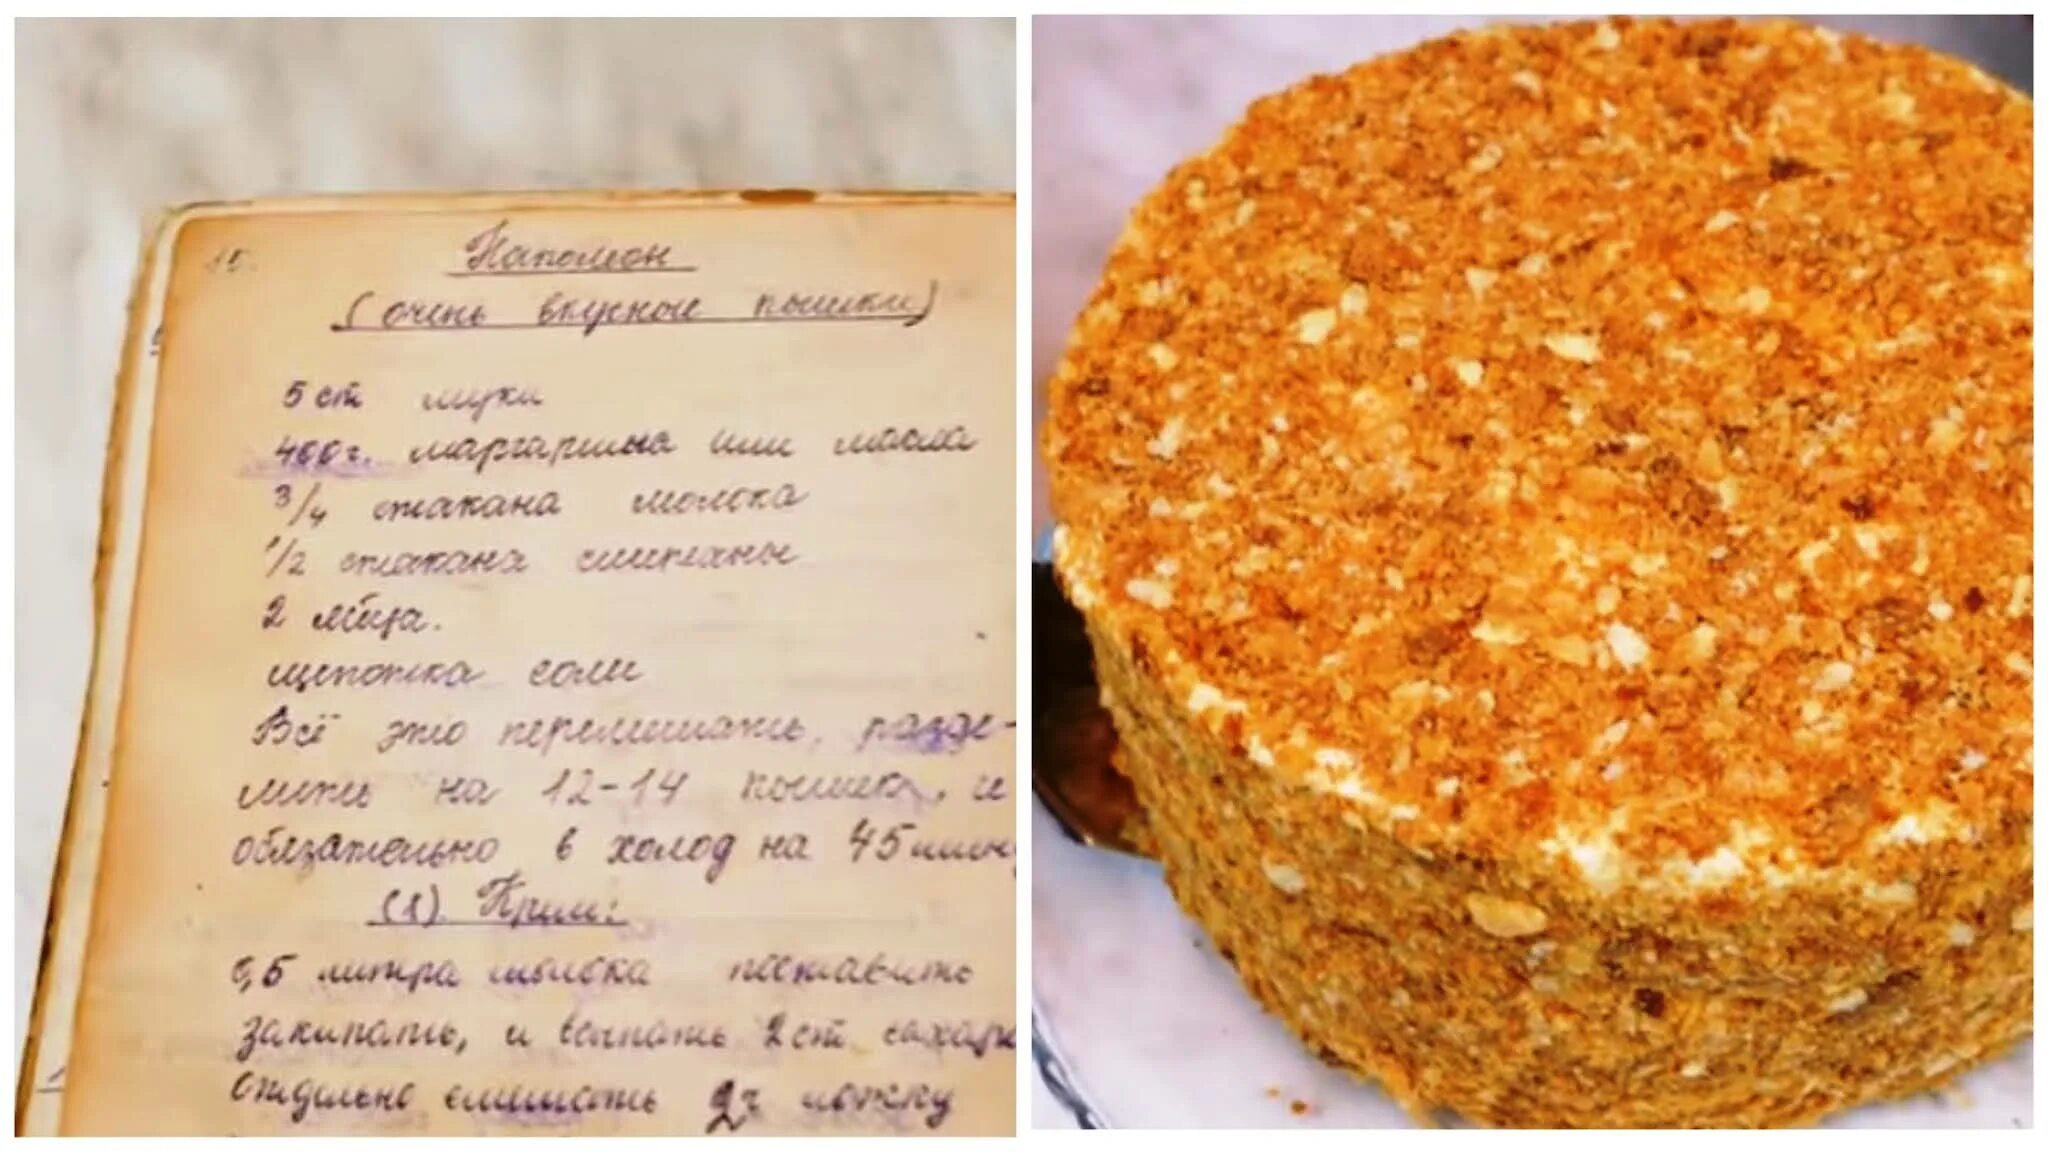 15.
Наполеон
(очень вкусной пышки)
5 ст муки
400 г. маргарина или масла
3/4 стакана молока
1/2 стакана сметаны
2 яйца.
щепотка соли
Всё это перемешать, разде-
лить на 12-14 пышек, и
обязательно в холод на 45 мин
(1) Крем:
0,5 литра молока поставить
закипать, и всыпать 2 ст сахара
отдельно смешать 2 ч ложку